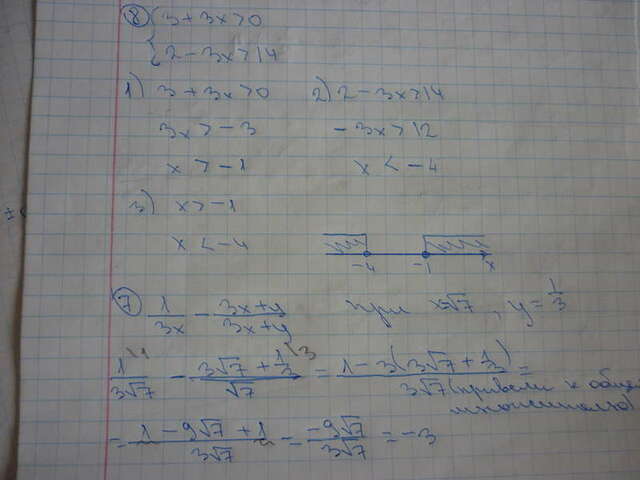 ⑧ { 3 + 3x > 0
2 - 3x > 14
1) 3 + 3x > 0 2) 2 - 3x > 14
3x > -3 -3x > 12
x > -1 x < -4
3) x > -1
x < -4
-4 -1 x
⑦ 1/3x - 3x+y/3x+y при x=√7, y = 1/3
1\1/3√7 - 3√7 + 1/3\3/√7 = 1 - 3(3√7 + 1/3)/3√7 =
(привели к общe
= 1 - 9√7 + 1/3√7 = -9√7/3√7 = -3